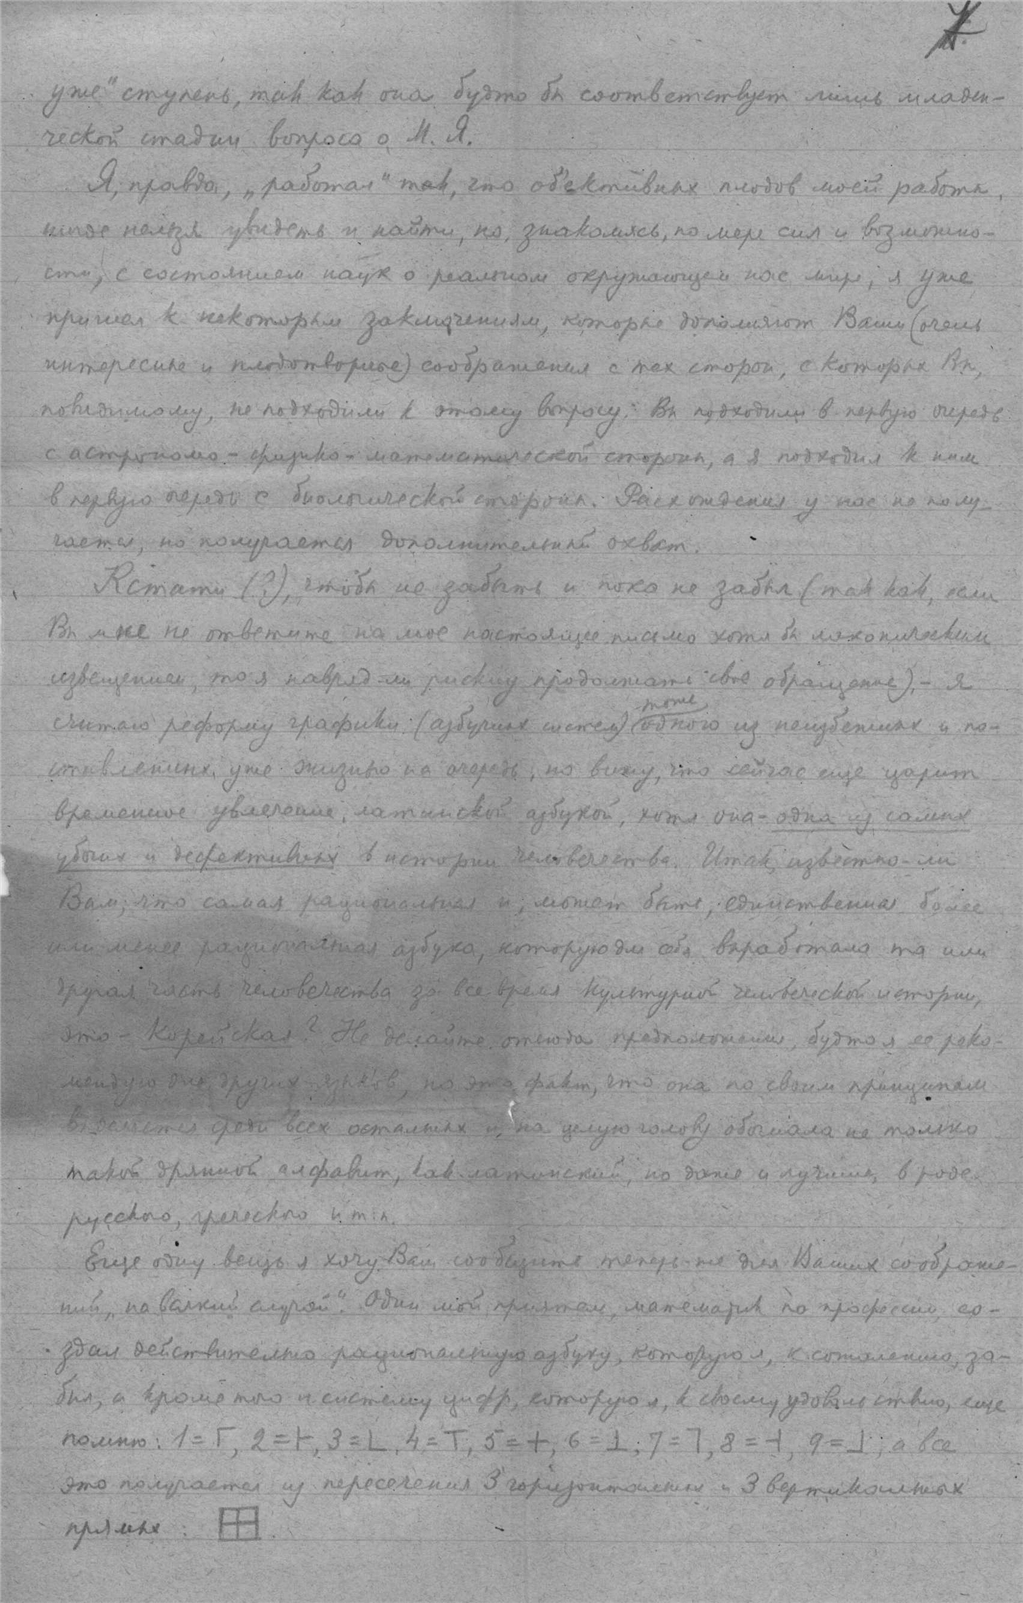 уже" ступень, так как она будто бы соответствует лишь младен-
ческой стадии вопроса о М. Я.
Я, правда, „работал" так, что об'ективных плодов моей работы
нельзя увидеть и найти, но, знакомясь, по мере сил и возможно-
сти, с состоянием наук о реальном окружающем нас мире, я уже
пришел к некоторым заключениям, которые дополняют Ваши (очень
интересные и плодотворные) соображения с тех сторон, с которых Вы,
повидимому, не подходили к этому вопросу: Вы подходили в первую очередь
с астрономо-физико-математической стороны, а я подходил к ним
в первую очередь с биологической стороны. Расхождения у нас не полу-
чается, но получается дополнительный охват.
Кстати (?), чтобы не забыть и пока не забыл (так как, если
Вы мне не ответите на мое настоящее письмо хотя бы лаконическим
извещением, то я навряд-ли рискну продолжать свое обращение),- я
считаю реформу графики (азбучных систем) тоже одною из неизбежных и по-
ставленных уже жизнью на очередь, но вижу, что сейчас еще царит
временное увлечение латинской азбукой, хотя она - одна из самых
убогих и дефективных в истории человечества. Итак, известно-ли
Вам, что самая рациональная и, может быть, единственная более
или менее рациональная азбука, которую для себя выработала та или
другая часть человечества за все время культурной человеческой истории,
это - Корейская? Не делайте отсюда предположения, будто я ее реко-
мендую для других языков, но это факт, что она по своим принципам
выдается среди всех остальных и на целую голову обогнала не только
такой дрянной алфавит, как латинский, но даже и лучшие, в роде
русского, греческого и т.п.
Еще одну вещь я хочу Вам сообщить теперь-же для Ваших соображе-
ний „на всякий случай". Один мой приятель, математик по профессии, со-
здал действительно рациональную азбуку, которую я, к сожалению, за-
был, а кроме того и систему цифр, которую я, к своему удовольствию, еще
помню: 1=Г, 2=├, 3=L, 4=T, 5=+, 6=⊥, 7=┐, 8=┤, 9=┘; а все
это получается из пересечения 3 горизонтальных и 3 вертикальных
прямых: